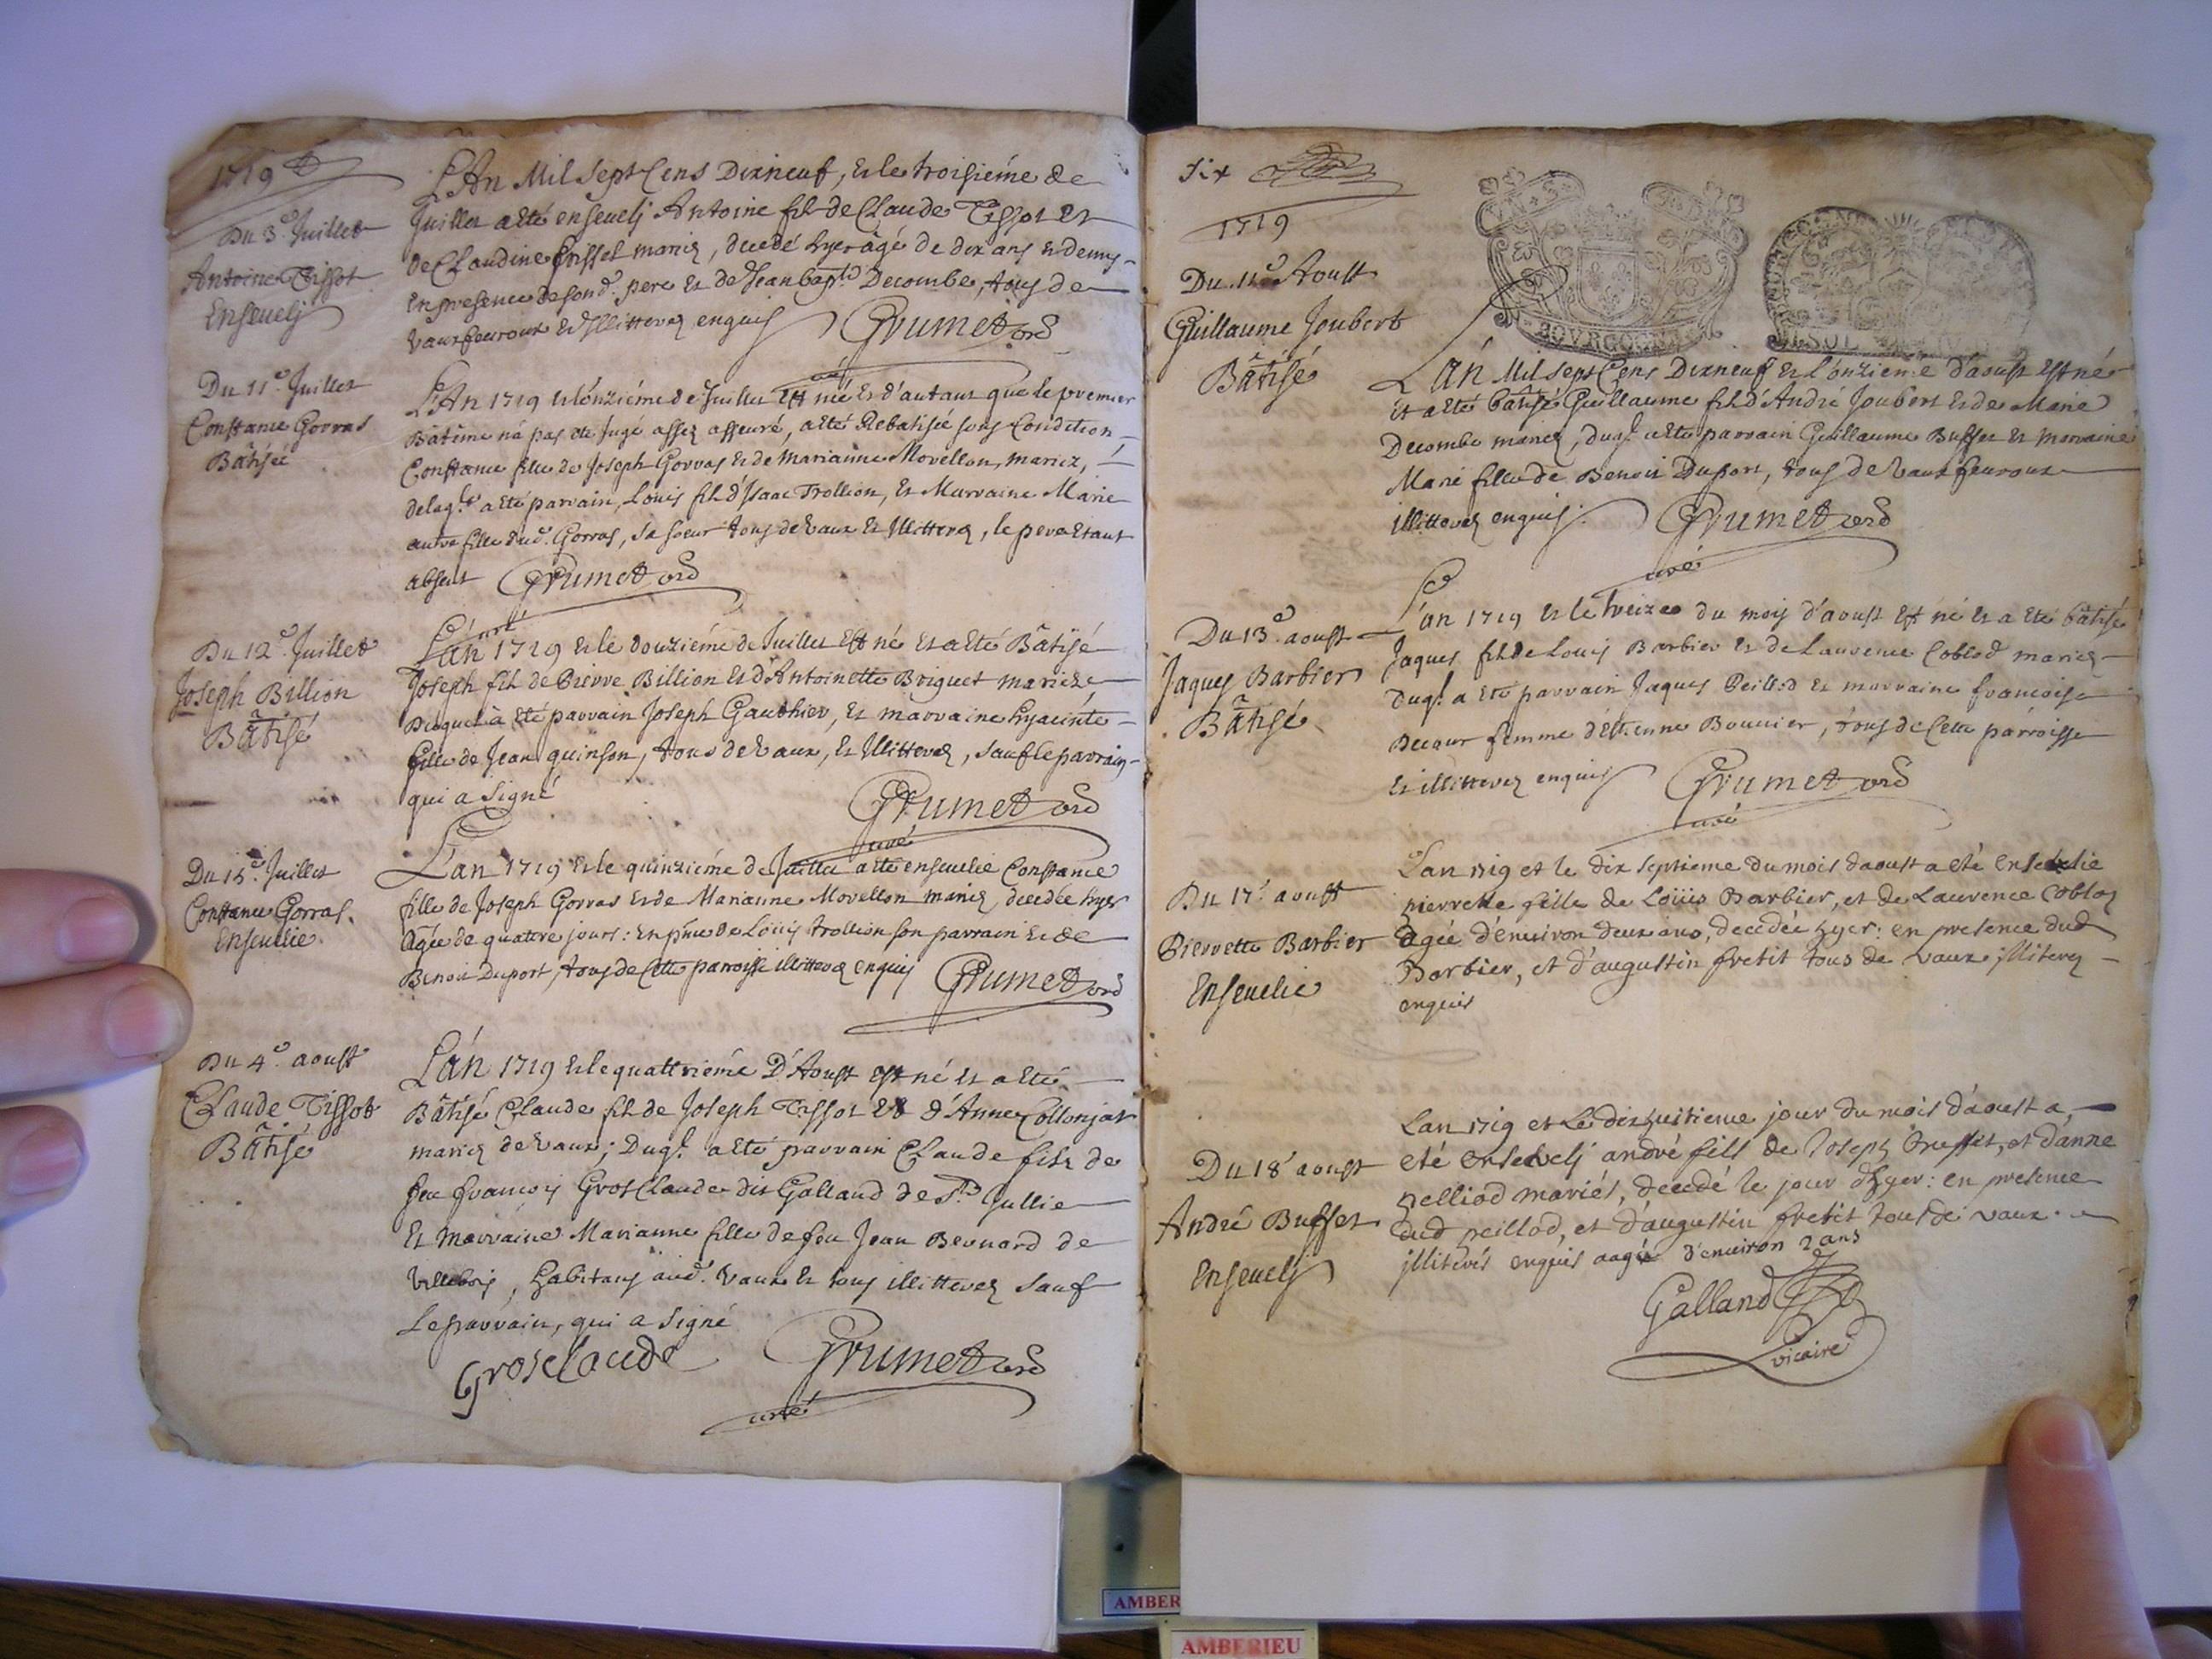 1719
Du 3e. Juillet
Antoine Tissot
Ensevelj
L'An Mil Sept Cens Dixneuf, et le troisiéme de
Juillet a eté ensevelj Antoine fils de Claude Tissot et
de Claudine mariez, decedé hyer âgé de dix ans et demy
en presence de sond. pere et de Jean bapt.e Decombe, tous de
Vauxfevroux et Illitterez enquis
Grumet
curé
Du 11e. Juillet
Constance Gorras
Bâtisée
L'An 1719 et l'ónziéme de Juillet est née et d'autant que le premier
Bâtême n'a pas eté jugé assez asseuré, a eté Rebatisée sous Condition
Constance fille de Joseph Gorras et de Marianne Morellon, mariez,
delaq.le a eté parrain, Louis fils d'Isaac Trollion, et Marraine Marie
autre fille dud. Gorras, sa soeur tous de Vaux et Illitterez, le pere etant
absent Grumet
curé
Du 12e. Juillet
Joseph Billion
Bâtisé
L'an 1719 et le douziéme de Juillet est né et a eté Bâtisé
Joseph fils de Pierre Billion et d'Antoinette Briguet mariez
Duquel à eté parrain Joseph Gauthier, et marraine hyacinte
fille de Jean quinson, tous de Vaux, et Illitterez, sauf le parrain
qui a signé
Grumet
curé
Du 15e. Juillet
Constance Gorras.
Ensevelie.
L'an 1719 et le quinziéme de Juillet a eté ensevelie Constance
fille de Joseph Gorras et de Marianne Morellon mariez, decedée hyer
âgée de quattre jours: En pnce de Loüis trollion son parrain et de
Benoit Duport, tous de cette parroisse illitterez enquis Grumet
Du 4e. aoust
Claude Tissot
Bâtisé
L'án 1719 et le quattriéme D'Aoust est né et a eté
Bâtisé Claude fils de Joseph Tissot et d'Anne Collonjat
mariez de Vaux; Duq.l a eté parrain Claude fils de
feu françois GrosClaude dit Galland de St. Jullie
Et Marraine Marianne fille de feu Jean Bernard de
Villebois, habitans aud. Vaux et tous illitterez sauf
Le parrain, qui a signé
Grosclaude Grumet
curé
Six
1719
Du. 11e Aoust
Guillaume Joubert
Bâtisé
BOURGO
L'án Mil Sept Cens Dixneuf et l'ónziéme d'aoust est né
et a eté bâtisé Guillaume fils d'André Joubert et de Marie
Decombe mariez, duq.l a eté parrain Guillaume Buffet et marraine
Marie fille de Benoit Duport, tous de Vauxfevroux
illitterez enquis. Grumet
curé
Du 13e. aoust
Jaques Barbier
Bâtisé
L'an 1719 et le treize du mois d'aoust est né et a eté bâtisé
Jaques fils de Louis Barbier et de Laurence Coblod mariez
duq.l a eté parrain Jaques Peillod et marraine francoise
Decour femme d'Estienne Bouvier, tous de cette parroisse
et illitterez enquis Grumet
curé
Du 17e. aoust
Pierrette Barbier
Ensevelie
Lan 1719 et le dix septieme du mois daoust a eté ensevelie
pierrette fille de Loüis Barbier, et de Laurence Cobloz
agée d'environ deux ans, decedée hyer: en presence dud
Barbier, et d'augustin fretit tous de vaux illiterez
enquis
Du 18e aoust
André Buffet
Ensevelj
Lan 1719 et Le dixhuitieme jour du mois d'aoust a
eté ensevelj andré fils de Joseph Buffet, et d'anne
pelliod mariés, decedé le jour d'hyer: en presence
dud peillod, et d'augustin fretit tous de vaux
illiterés enquis aagé d'environ 2 ans
Galland
vicaire
AMBER
AMBERIEU